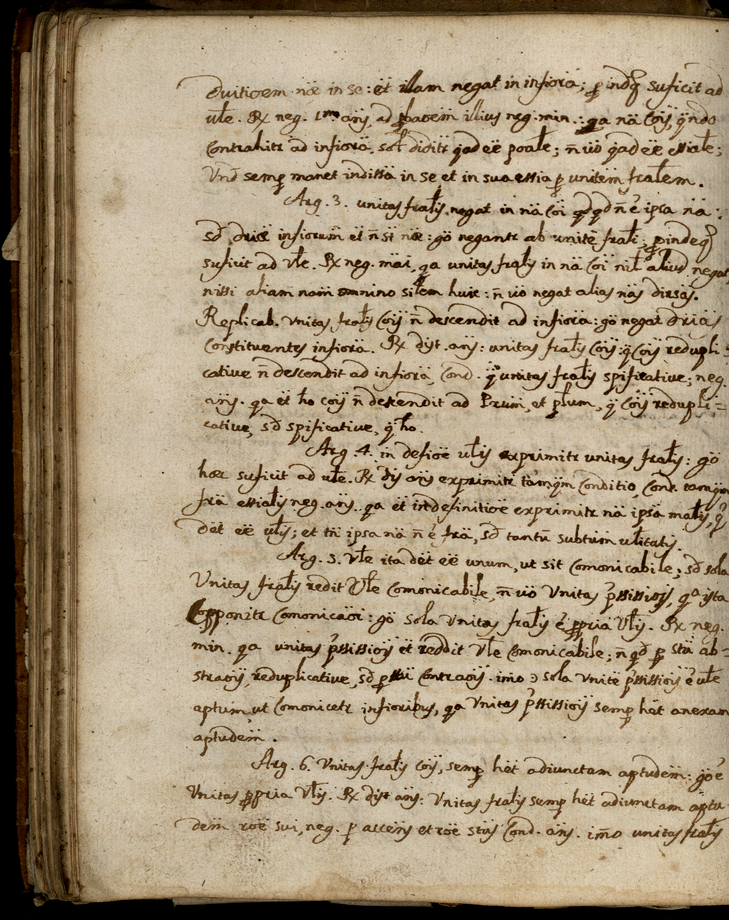 duitioem nae in se: et illam negat in infiora; p indq suficit ad
ule. Rx neg. 1m ans, ad pbaoem illius neg. min.: qa na cois, qndo
contrahitr ad infiora, solu diditr qad eē poale; n uo qad eē essiale;
Und semp manet indissa in se et in sua essia p unitem fralem.
Arg. 3. unitas fralis negat in na coi qd n ē ipsa na:
sd driae infiorum et n st nae: go negantr ab unite frali; pindeq
suficit ad Vle. Rx neg. mai, qa unitas fralis in na coi nil aliud negat
nissi aliam nam omnino silem huic: n uo negat alias nas divsas.
Replicab. Unitas fralis cois n descendit ad infiora: go negat drias
constituentes infiora. Rx dist. ans: unitas fralis cois: q cois redupli-
cative n descendit ad infiora, Cond. q unitas fralis spificative; neg.
ans. qa et ho cois n descendit ad Prum, et plum, q cois redupli=
cative, sd spificative, q ho.
Arg. 4. in defioe ulis exprimitr unitas fralis: go
haec suficit ad ule. Rx dis ans exprimitr tamqm conditio, Cond. tamqm
fra essialis neg. ans.. qa et in definitioe exprimitr na ipsa malis, q
det eē ulis; et tn ipsa na n ē fra, sd tantu subtum ulitatis.
Arg. 5. Vle ita det eē unum, ut sit Comonicabile; sd sola
Unitas fralis redit Vle Comonicabile, n uo Unitas pssissiois, qa ista
opponitr comonicaoi: go sola Unitas fralis ē ppria Ulis. Rx neg.
min. qa unitas pssissiois et reddit Vle Comonicabile; n qd p sta ab-
straois, reduplicative, sd p stu contraois. imo ↄ sola Unite pssissiois ē ule
aptum, ut Comonicetr infioribus, qa Unitas pssissiois semp het anexam
aptudem.
Arg. 6. Unitas fralis cois, semp het adiunctam aptudem: go ē
Unitas ppria Ulis. Rx dist ans: Unitas fralis semp het adiunctam aptu-
dem roe sui, neg. p accens et roe stas Cond. ans. imo unitas fralis